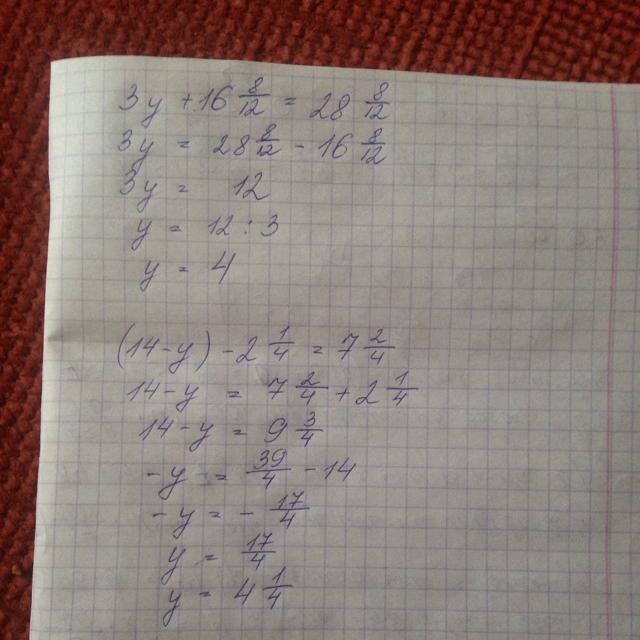 3y + 16 8/12 = 28 8/12
3y = 28 8/12 - 16 8/12
3y = 12
y = 12 : 3
y = 4
(14-y) - 2 1/4 = 7 2/4
14-y = 7 2/4 + 2 1/4
14-y = 9 3/4
-y = 39/4 - 14
-y = - 17/4
y = 17/4
y = 4 1/4